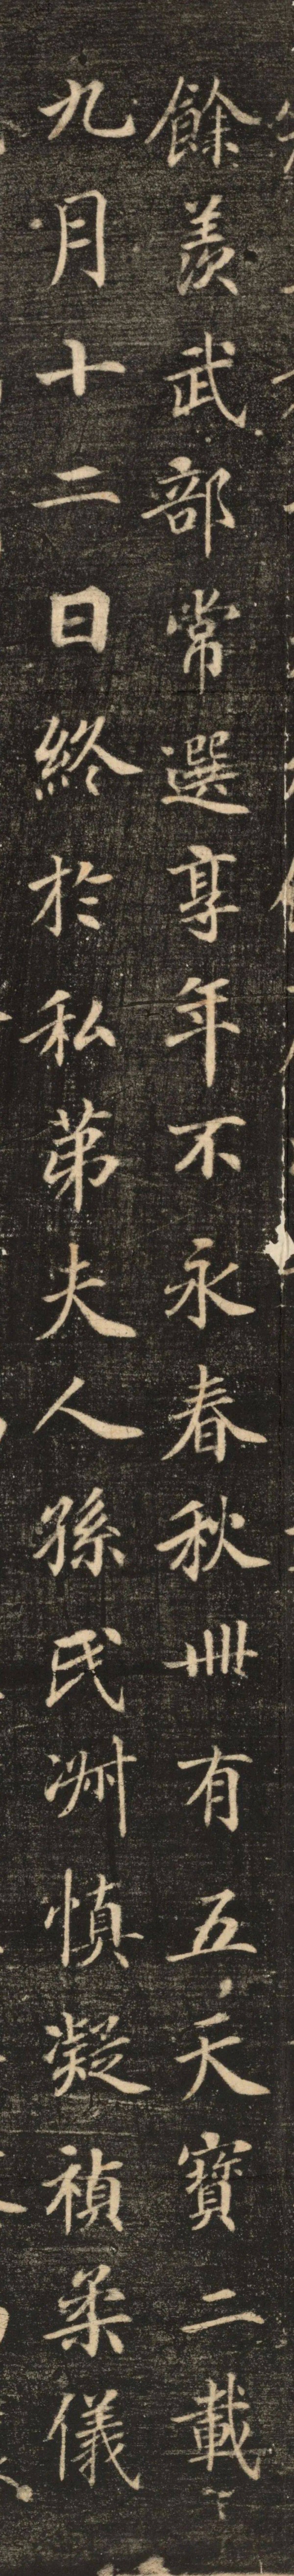 餘羨武部常選享年不永春秋卌有五天寶二載
九月十二日終於私第夫人孫氏淑慎凝禎柔儀